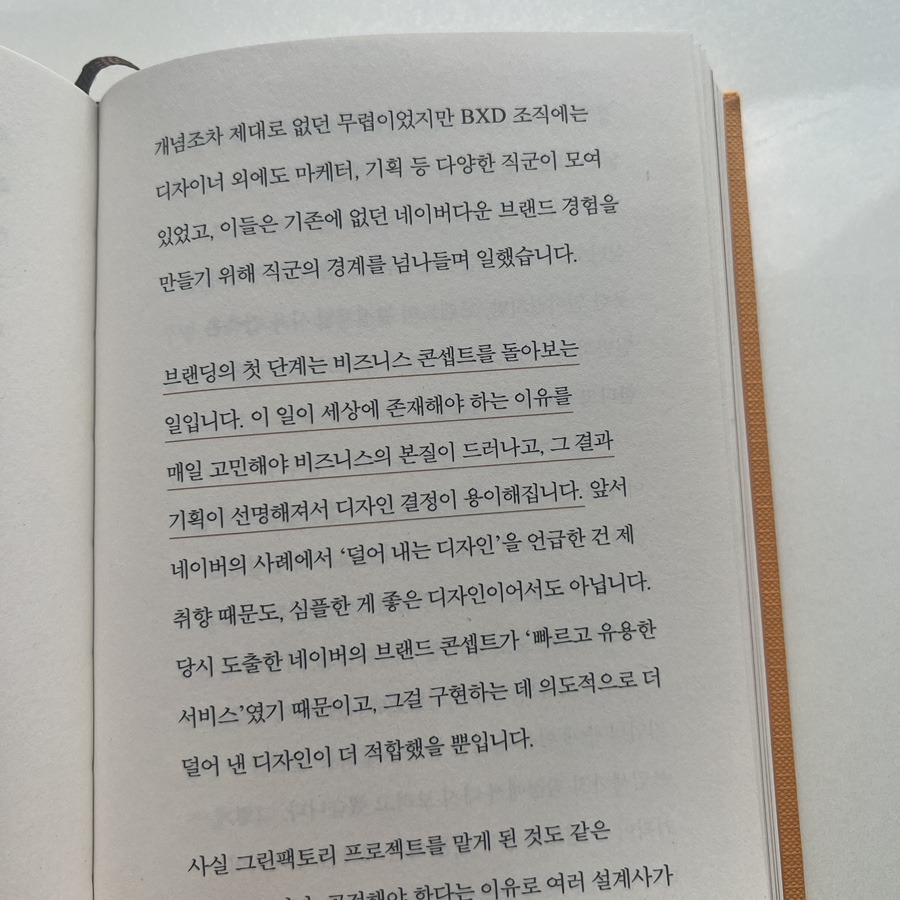 개념조차 제대로 없던 무렵이었지만 BXD 조직에는
디자이너 외에도 마케터, 기획 등 다양한 직군이 모여
있었고, 이들은 기존에 없던 네이버다운 브랜드 경험을
만들기 위해 직군의 경계를 넘나들며 일했습니다.
브랜딩의 첫 단계는 비즈니스 콘셉트를 돌아보는
일입니다. 이 일이 세상에 존재해야 하는 이유를
매일 고민해야 비즈니스의 본질이 드러나고, 그 결과
기획이 선명해져서 디자인 결정이 용이해집니다. 앞서
네이버의 사례에서 ‘덜어 내는 디자인’을 언급한 건 제
취향 때문도, 심플한 게 좋은 디자인이어서도 아닙니다.
당시 도출한 네이버의 브랜드 콘셉트가 ‘빠르고 유용한
서비스’였기 때문이고, 그걸 구현하는 데 의도적으로 더
덜어 낸 디자인이 더 적합했을 뿐입니다.
사실 그린팩토리 프로젝트를 맡게 된 것도 같은
한다는 이유로 여러 설계사가